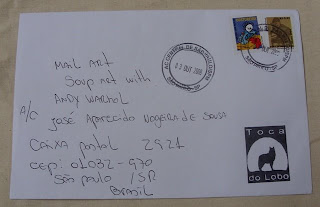 MAIL ART
Soup net with
ANDY WARHOL
A/C José Aparecido Nogeira de Sousa
Caixa Postal 2921
cep: 01032-970
São Paulo /SP
Brasil
Toca
do Lobo